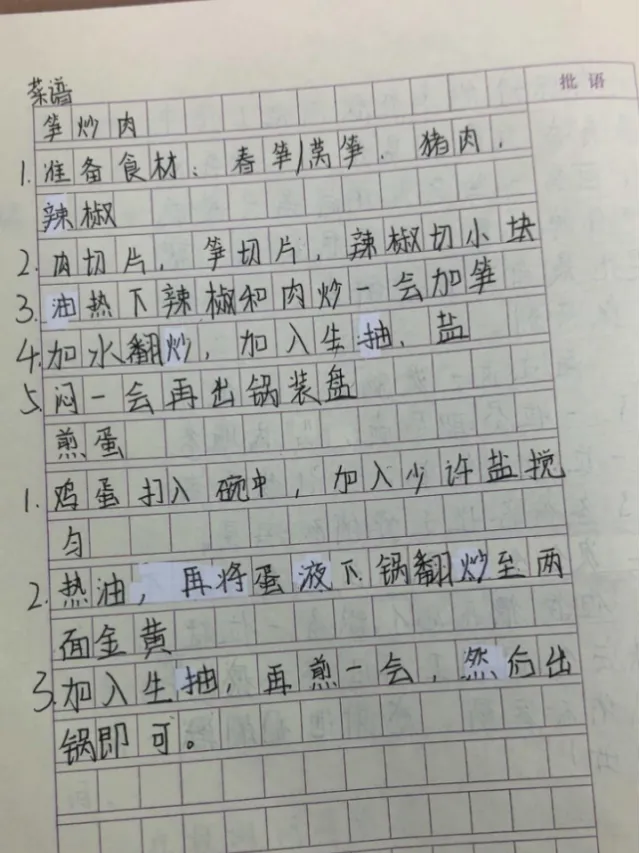 批语
菜谱
笋炒肉
1. 准备食材：春笋/莴笋、猪肉、
辣椒
2. 肉切片，笋切片，辣椒切小块
3. 油热下辣椒和肉炒一会加笋
4. 加水翻炒，加入生抽、盐
5. 闷一会再出锅装盘
煎蛋
1. 鸡蛋打入碗中，加入少许盐搅
匀
2. 热油，再将蛋液下锅翻炒至两
面金黄
3. 加入生抽，再煎一会，然后出
锅即可。